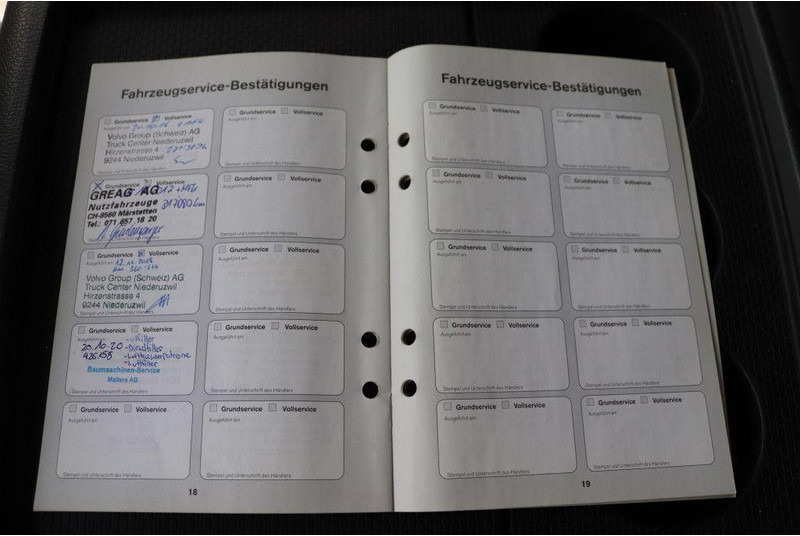 Fahrzeugservice-Bestätigungen
Grundservice Vollservice
Ausgeführt am:
Volvo Group (Schweiz) AG
Truck Center Niederuzwil
Hirzenstrasse 4
9244 Niederuzwil
Stempel und Unterschrift des Händlers
Grundservice Vollservice
Ausgeführt am:
Stempel und Unterschrift des Händlers
Grundservice
GREAG AG
Nutzfahrzeuge
CH-8560 Märstetten
Tel.: 071 657 18 20
317080 km
Grundservice Vollservice
Ausgeführt am:
Stempel und Unterschrift des Händlers
Grundservice Vollservice
Ausgeführt am:
Volvo Group (Schweiz) AG
Truck Center Niederuzwil
Hirzenstrasse 4
9244 Niederuzwil
Grundservice Vollservice
Ausgeführt am:
Stempel und Unterschrift des Händlers
Grundservice Vollservice
20.10.20
426158
-Luftfilter
Baumaschinen-Service
Malters AG
Grundservice Vollservice
Ausgeführt am:
Stempel und Unterschrift des Händlers
Grundservice Vollservice
Ausgeführt am:
Stempel und Unterschrift des Händlers
Grundservice Vollservice
Ausgeführt am:
Stempel und Unterschrift des Händlers
18
Fahrzeugservice-Bestätigungen
Grundservice Vollservice
Ausgeführt am:
Stempel und Unterschrift des Händlers
Grundservice Vollservice
Ausgeführt am:
Stempel und Unterschrift des Händlers
Grundservice Vollservice
Ausgeführt am:
Stempel und Unterschrift des Händlers
Grundservice Vollservice
Ausgeführt am:
Stempel und Unterschrift des Händlers
Grundservice Vollservice
Ausgeführt am:
Stempel und Unterschrift des Händlers
Grundservice Vollservice
Ausgeführt am:
Stempel und Unterschrift des Händlers
Grundservice Vollservice
Ausgeführt am:
Stempel und Unterschrift des Händlers
Grundservice Vollservice
Ausgeführt am:
Stempel und Unterschrift des Händlers
Grundservice Vollservice
Ausgeführt am:
Stempel und Unterschrift des Händlers
Grundservice Vollservice
Ausgeführt am:
Stempel und Unterschrift des Händlers
19